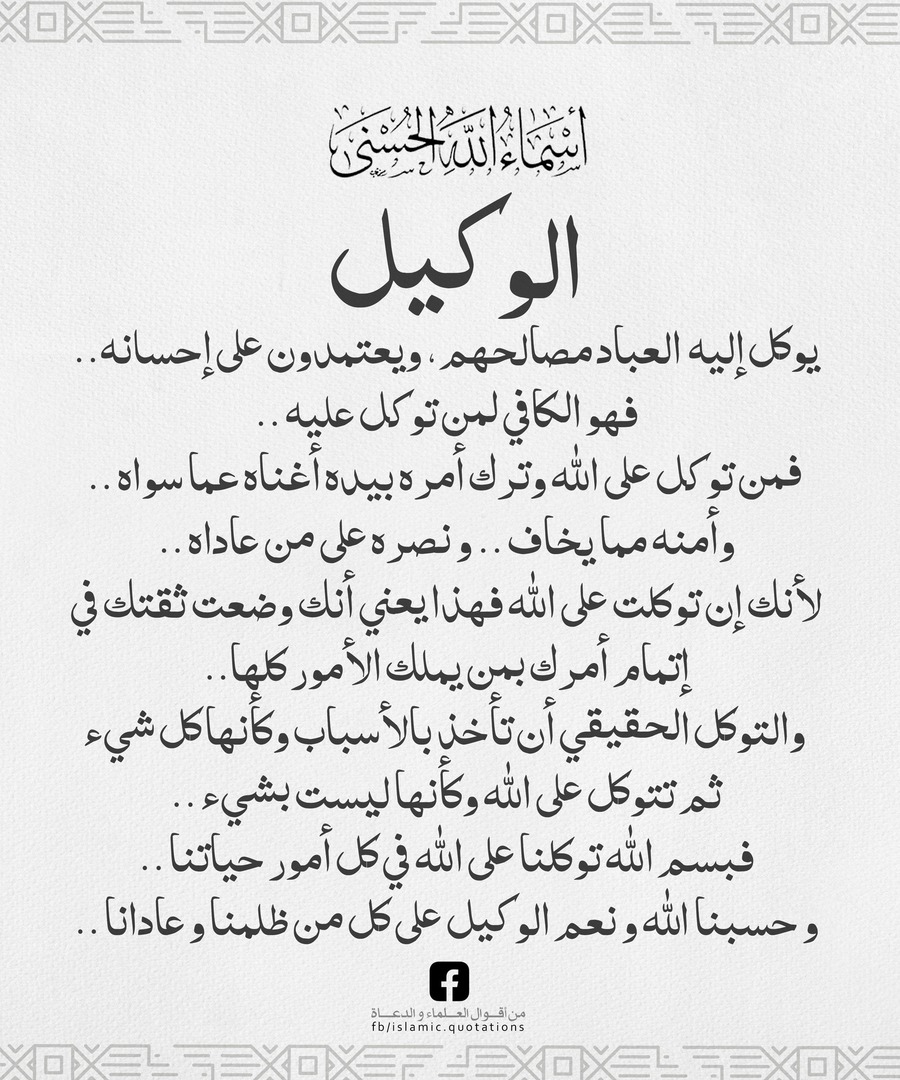 أسماء الله الحسنى
الوكيل
يوكل إليه العباد مصالحهم، ويعتمدون على إحسانه..
فهو الكافي لمن توكل عليه..
فمن توكل على الله وترك أمره بيده أغناه عما سواه..
وأمنه مما يخاف.. ونصره على من عاداه..
لأنك إن توكلت على الله فهذا يعني أنك وضعت ثقتك في
إتمام أمرك بمن يملك الأمور كلها..
والتوكل الحقيقي أن تأخذ بالأسباب وكأنها كل شيء
ثم تتوكل على الله وكأنها ليست بشيء..
فبسم الله توكلنا على الله في كل أمور حياتنا..
وحسبنا الله ونعم الوكيل على كل من ظلمنا وعادانا..
من أقوال العلماء والدعاة
fb/islamic.quotations